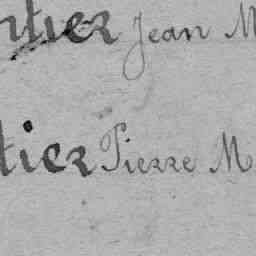 ntier Jean M
tier Pierre M